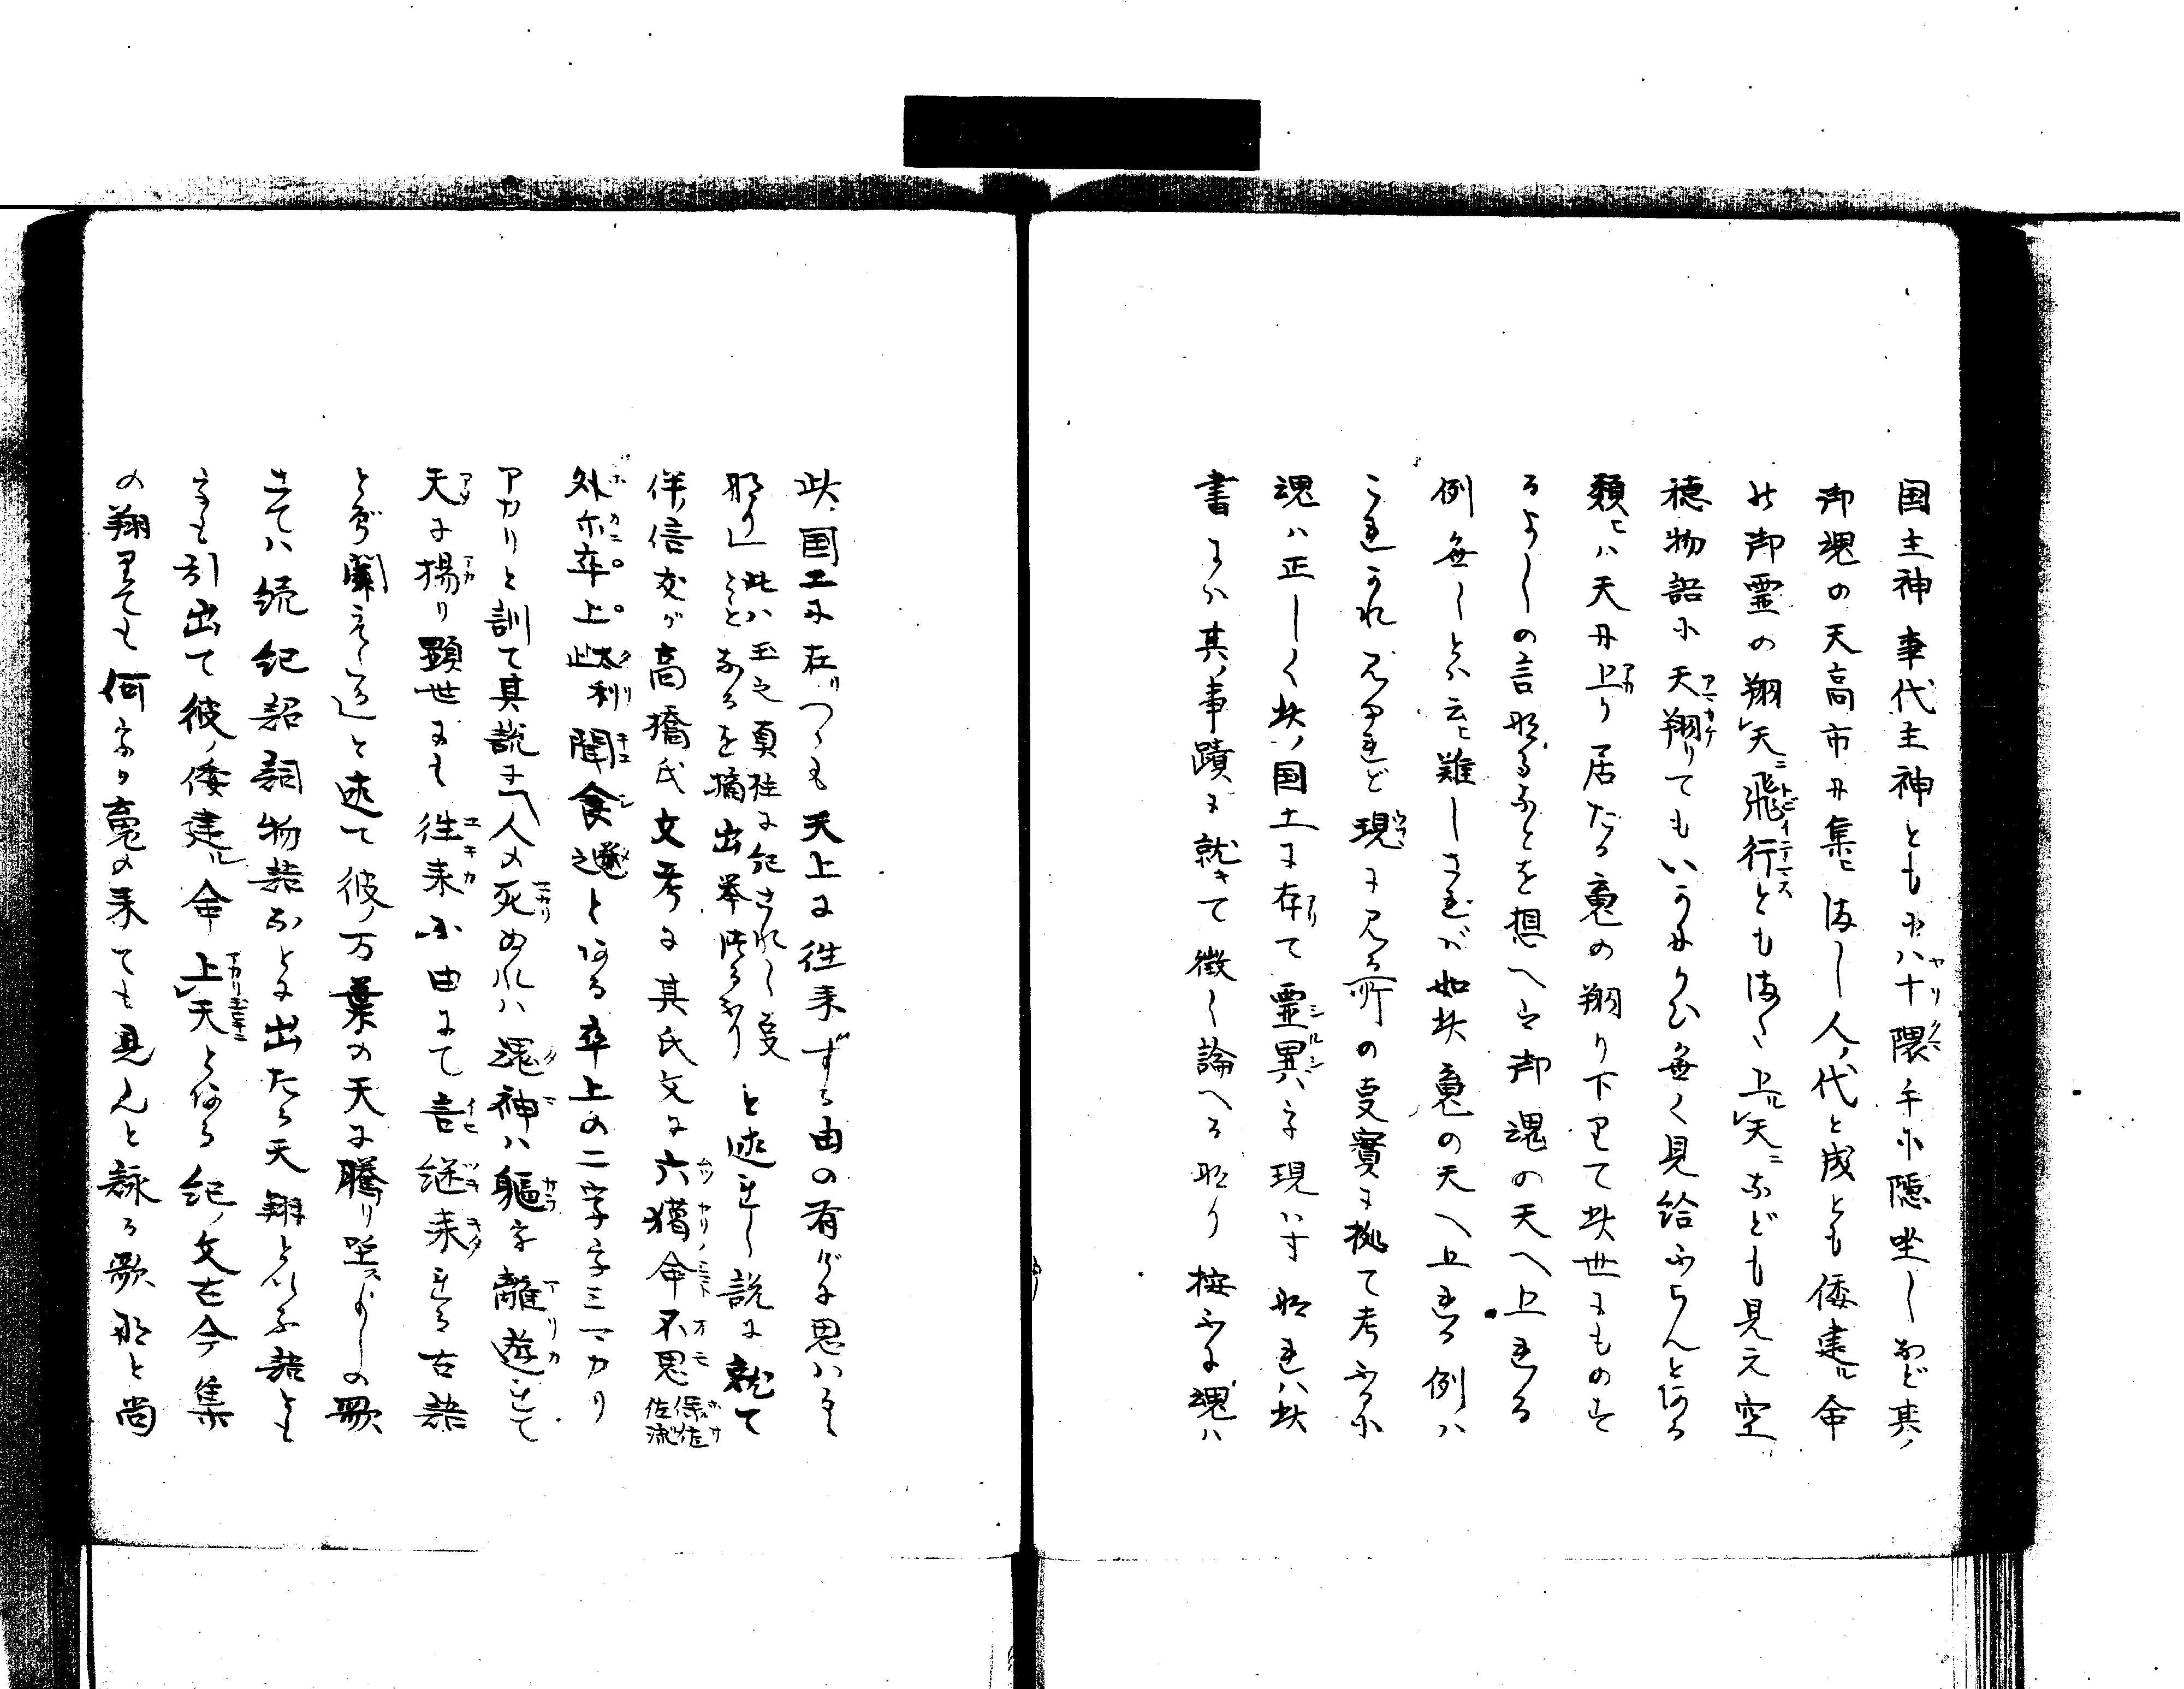 国主神事代主神とも亦八十隈手小隠坐しなど其ノ
御魂の天高市丹集ヒ海し人ノ代と成とも倭建ル命
の御霊の翔レ天ニ飛行とも海た上レ天ニなども見え空
穂物語小天翔りてもいかにかひ無く見給ふらんとある
類ヒハ天丹上り居たる竟の翔り下りて此世にものせ
るよしの言なるなとを想へハ御魂の天へ上れる
例無しとハ云ヒ難しされバ如此竟の天へ上れる例ハ
これかれ見ゆれど現に見る所の事實に拠て考ふる小
魂ハ正しく此ノ国土に存て霊異を現ハす なれハ此
書にハ其ノ事蹟に就きて徴し論へるなり按ふに魂ハ
此ノ国土に在りつゝも天上に往来ずる由の有げに思ハる
なり 此ハ玉之真柱に記されし事 ことなるを摘出挙 と述れし説に就て
伴ノ信友ガ高橋氏文考に其氏文に六獦命不思保佐佐流
外尓卒上太利聞食とある卒上の二字を三マカリ
アカリと訓て其説に人の死ぬれハ魂神ハ軀を離遊れて
天に揚り顕世にも往来ふ由にて言継来れる古語
とぞ聞えたると述て彼ノ万葉の天に騰り坐スよしの歌
さてハ続紀詔詞物語などに出たる天翔といふ語とも
をも引出て彼ノ倭建ル命上レ天とある紀ノ文古今集
の翔りても何をか竟の来ても見んと詠る歌なと尚